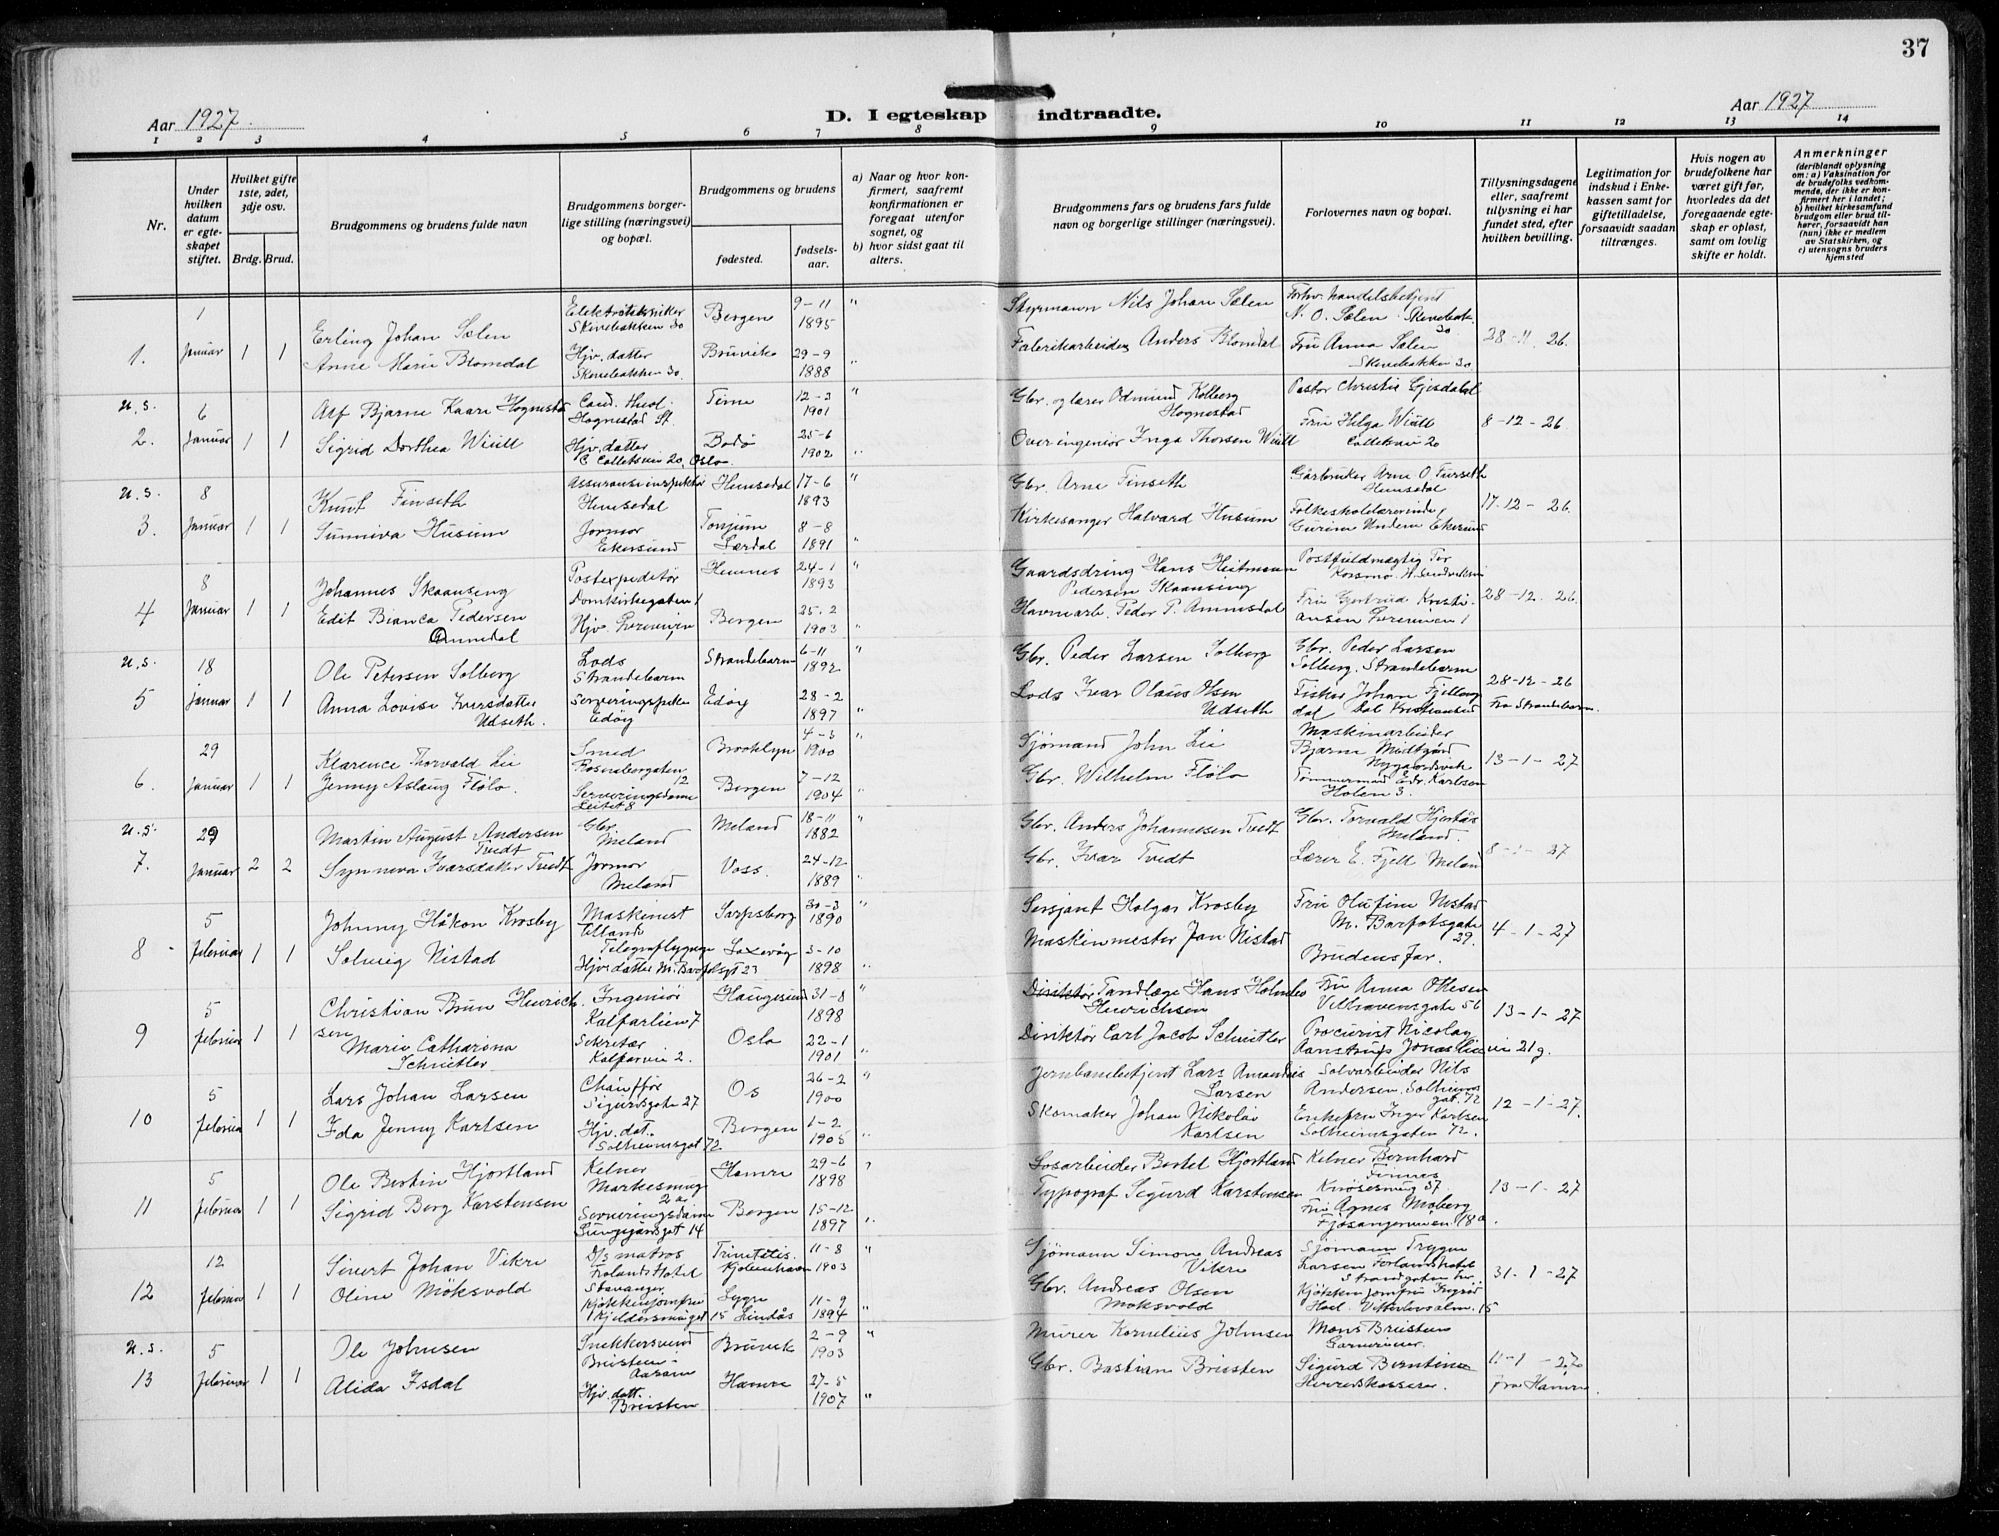 37
Aar 1927
D. I egteskap indtraadte.
Aar 1927
1 2 3 4 5 6 7 8 9 10 11 12 13 14
Nr.
Under hvilken datum er egteskapet stiftet.
Hvilket gifte 1ste, 2det, 3dje osv.
Brdg. Brud.
Brudgommens og brudens fulde navn
Brudgommens borgerlige stilling (næringsvei) og bopæl.
Brudgommens og brudens
fødested.
fødselsaar.
a) Naar og hvor konfirmert, saafremt konfirmationen er foregaat utenfor sognet, og
b) hvor sidst gaat til alters.
Brudgommens fars og brudens fars fulde navn og borgerlige stillinger (næringsvei).
Forlovernes navn og bopæl.
Tillysningsdagene eller, saafremt tillysning ei har fundet sted, efter hvilken bevilling.
Legitimation for indskud i Enkekassen samt for giftetilladelse, forsaavidt saadan tiltrænges.
Hvis nogen av brudefolkene har været gift før, hvorledes da det foregaaende egteskap er opløst, samt om lovlig skifte er holdt.
Anmerkninger
(deriblandt oplysning om: a) Vaksination for de brudefolks vedkommende, der ikke er konfirmert her i landet; b) hvilket kirkesamfund brudgom eller brud tilhører, forsaavidt han (hun) ikke er medlem av Statskirken, og c) utensogns bruders hjemsted
1. 1 Januar 1 1
Erling Johan Sælen
Elektrotekniker Skivebakken 30
Bergen 9-11 1895 "
Styrmann Nils Johan Sælen
Forhv. handelsbetjent N. O. Sælen Skivebak. 30
28-11-26.
Anne Marie Blomdal
Hjv. datter Skivebakken 30.
Bruvik 29-9 1888 "
Fabrikarbeider Anders Blomdal
Fru Anna Sælen Skivebakken 30
u.s. 2. 6 Januar 1 1
Alf Bjarne Kaare Hognestad
Cand. theol. Hognestad St.
Time 12-3 1901 "
Gbr. og lærer Odmund Kolberg Hognestad
Pastor Christie Gjesdahl
8-12-26.
Sigrid Dorthea Wiull
Hjv. datter C Colletsvei 20, Oslo.
Bodø 25-6 1902 "
Overingeniör Inga Thorsen Wiull
Fru Helga Wiull Colletsvei 20
u.s. 3. 8 Januar 1 1
Knut Finseth
Assuranseinspektör Hemsedal
Hemsedal 17-6 1893 "
Gbr. Arne Finseth
Gårbruker Arne O. Finseth Hemsedal
17-12-26.
Sunniva Husum
Jormor Ekersund
Tonjum Lærdal 8-8 1891 "
Kirkesanger Halvard Husum
Folkeskolelærerinde Gurine Undem Ekersund
4 8 Januar 1 1
Johannes Skaanseng
Postexpeditør Domkirkegaten 1
Hemnes 24-1 1893 "
Gaardsdreng Hans Heitmann Pedersen Skaanseng
Postfuldmægtig Tor Korsmo H. Sundveksvei
28-12-26.
Edit Bianca Pedersen Ammedal
Hjv.
Bergen 25-2 1903 "
Havnearb. Peder P. Ammedal
Fru Gjertrud Kristiansen
u.s. 5 18 Januar 1 1
Ole Petersen Solberg
Lods Strandebarm
Strandebarm 6-11 1892 "
Gbr. Peder Larsen Solberg
Gbr. Peder Larsen Solberg. Strandebarm
28-12-26 Fra Strandebarm.
Anna Lovise Iversdatter Udseth.
Serveringspike Edöy
Edöy 28-2 1897 "
Lods Ivar Olaus Olsen Udseth
Fisker Johan Fjellengdal Dal Kristiansund
6. 29 Januar 1 1
Klarence Thorvald Lie
Smed Rosenborgaten 12
Brooklyn 4-3 1900 "
Sjömand John Lie
Maskinarbeider Bjarne Midtgård Nygaardsvik
13-1-27
Jenny Aslaug Flölo.
Serveringsdame Leitet 8
Bergen 7-12 1904 "
Gbr. Wilhelm Flölo
Tömmermand Edv. Karlsen Holen 3.
u.s. 7. 29 Januar 2 2
Martin August Andersen Tvedt
Gbr. Meland
Meland 18-11 1882 "
Gbr. Anders Johannesen Tvedt
Gbr. Torvald Hjertås Meland.
8-1-27
Synneva Ivarsdatter Tvedt
Jormor Meland
Voss. 24-12 1889 "
Gbr. Ivar Tvedt
Lærer E. Fjell Meland
8 5 februar 1 1
Johnny Håkon Krosby
Maskinist
Sarpsborg 30-3 1890 "
Sersjant Holger Krosby
Fru Olufine Nistad M. Barfotsgate 29.
4-1-27
Solveig Nistad
Hjv. datter M. Barfotsgt 23
Laxevåg 3-10 1898 "
Maskinmester Jan Nistad
Brudens far.
9 5 februar 1 1
Christian Brun Henrichsen
Ingeniör Kalfarlien 7
Haugesund 31-8 1898 "
Direktör Tandlæge Hans Holmbo Henrichsen
Fru Anna Ottesen Vilhavensgate 56
13-1-27
Marie Catharina Schnitler
Sekretær Kalfarvei 2.
Oslo 22-1 1901 "
Direktör Carl Jacob Schnitler
Procurist Nicolay Aanstrup Jonas Lie vei 21g.
10 5 februar 1 1
Lars Johan Larsen
Chauffør Sigurdsgate 27
Os 26-2 1900 "
Jernbanebetjent Lars Amandus Larsen
Solvarbeider Nils Andersen Solheimsgat. 72
12-1-27.
Ida Jenny Karlsen
Hjv. dat. Solheimsgat 72
Bergen 1-2 1905 "
Skomaker Johan Nikolai Karlsen
Enkefru Inger Karlsen Solheimsgaten 72.
11 5 februar 1 1
Ole Bertin Hjortland
Kelner Markesmug 2a
Hamre 29-6 1898 "
Losarbeider Bertel Hjortland
Kelner Bernhard Finnes Knösesmug 37
13-1-27
Sigrid Berg Karstensen
Serveringsdame Lungegårdsgt 14
Bergen 15-12 1897 "
Typograf Sigurd Karstensen
Fru Agnes Moberg Fjösangerveien 18a.
12 12 februar 1 1
Sivert Johan Vikre
D/s matros Stavanger
Trinitatis. Kjøbenhavn 11-8 1903 "
Sjömann Simon Andreas Vikre
Sjømann Trygve Larsen
31-1-27
Oline Möksvold
Kjøkkenjomfru Kjeldersmuget 15
Lygre Lindås 11-9 1894 "
Gbr. Andreas Olsen Moksvold
Kjøkkenjomfru Ingrid Hoel. Vitterlevsalm. 15
u.s. 13 5 februar 1 1
Ole Johnsen
Snekkersvend
Bruvik 2-9 1903 "
Murer Kornelius Johnsen
Mons Bruisten Garveriever.
11-1-27 fra Hamre.
Alida Isdal
Hjv. datt. Breisten
Hamre 27-5 1907 "
Gbr. Bastian Breisten
Sigurd Berntine Herredskasserer.